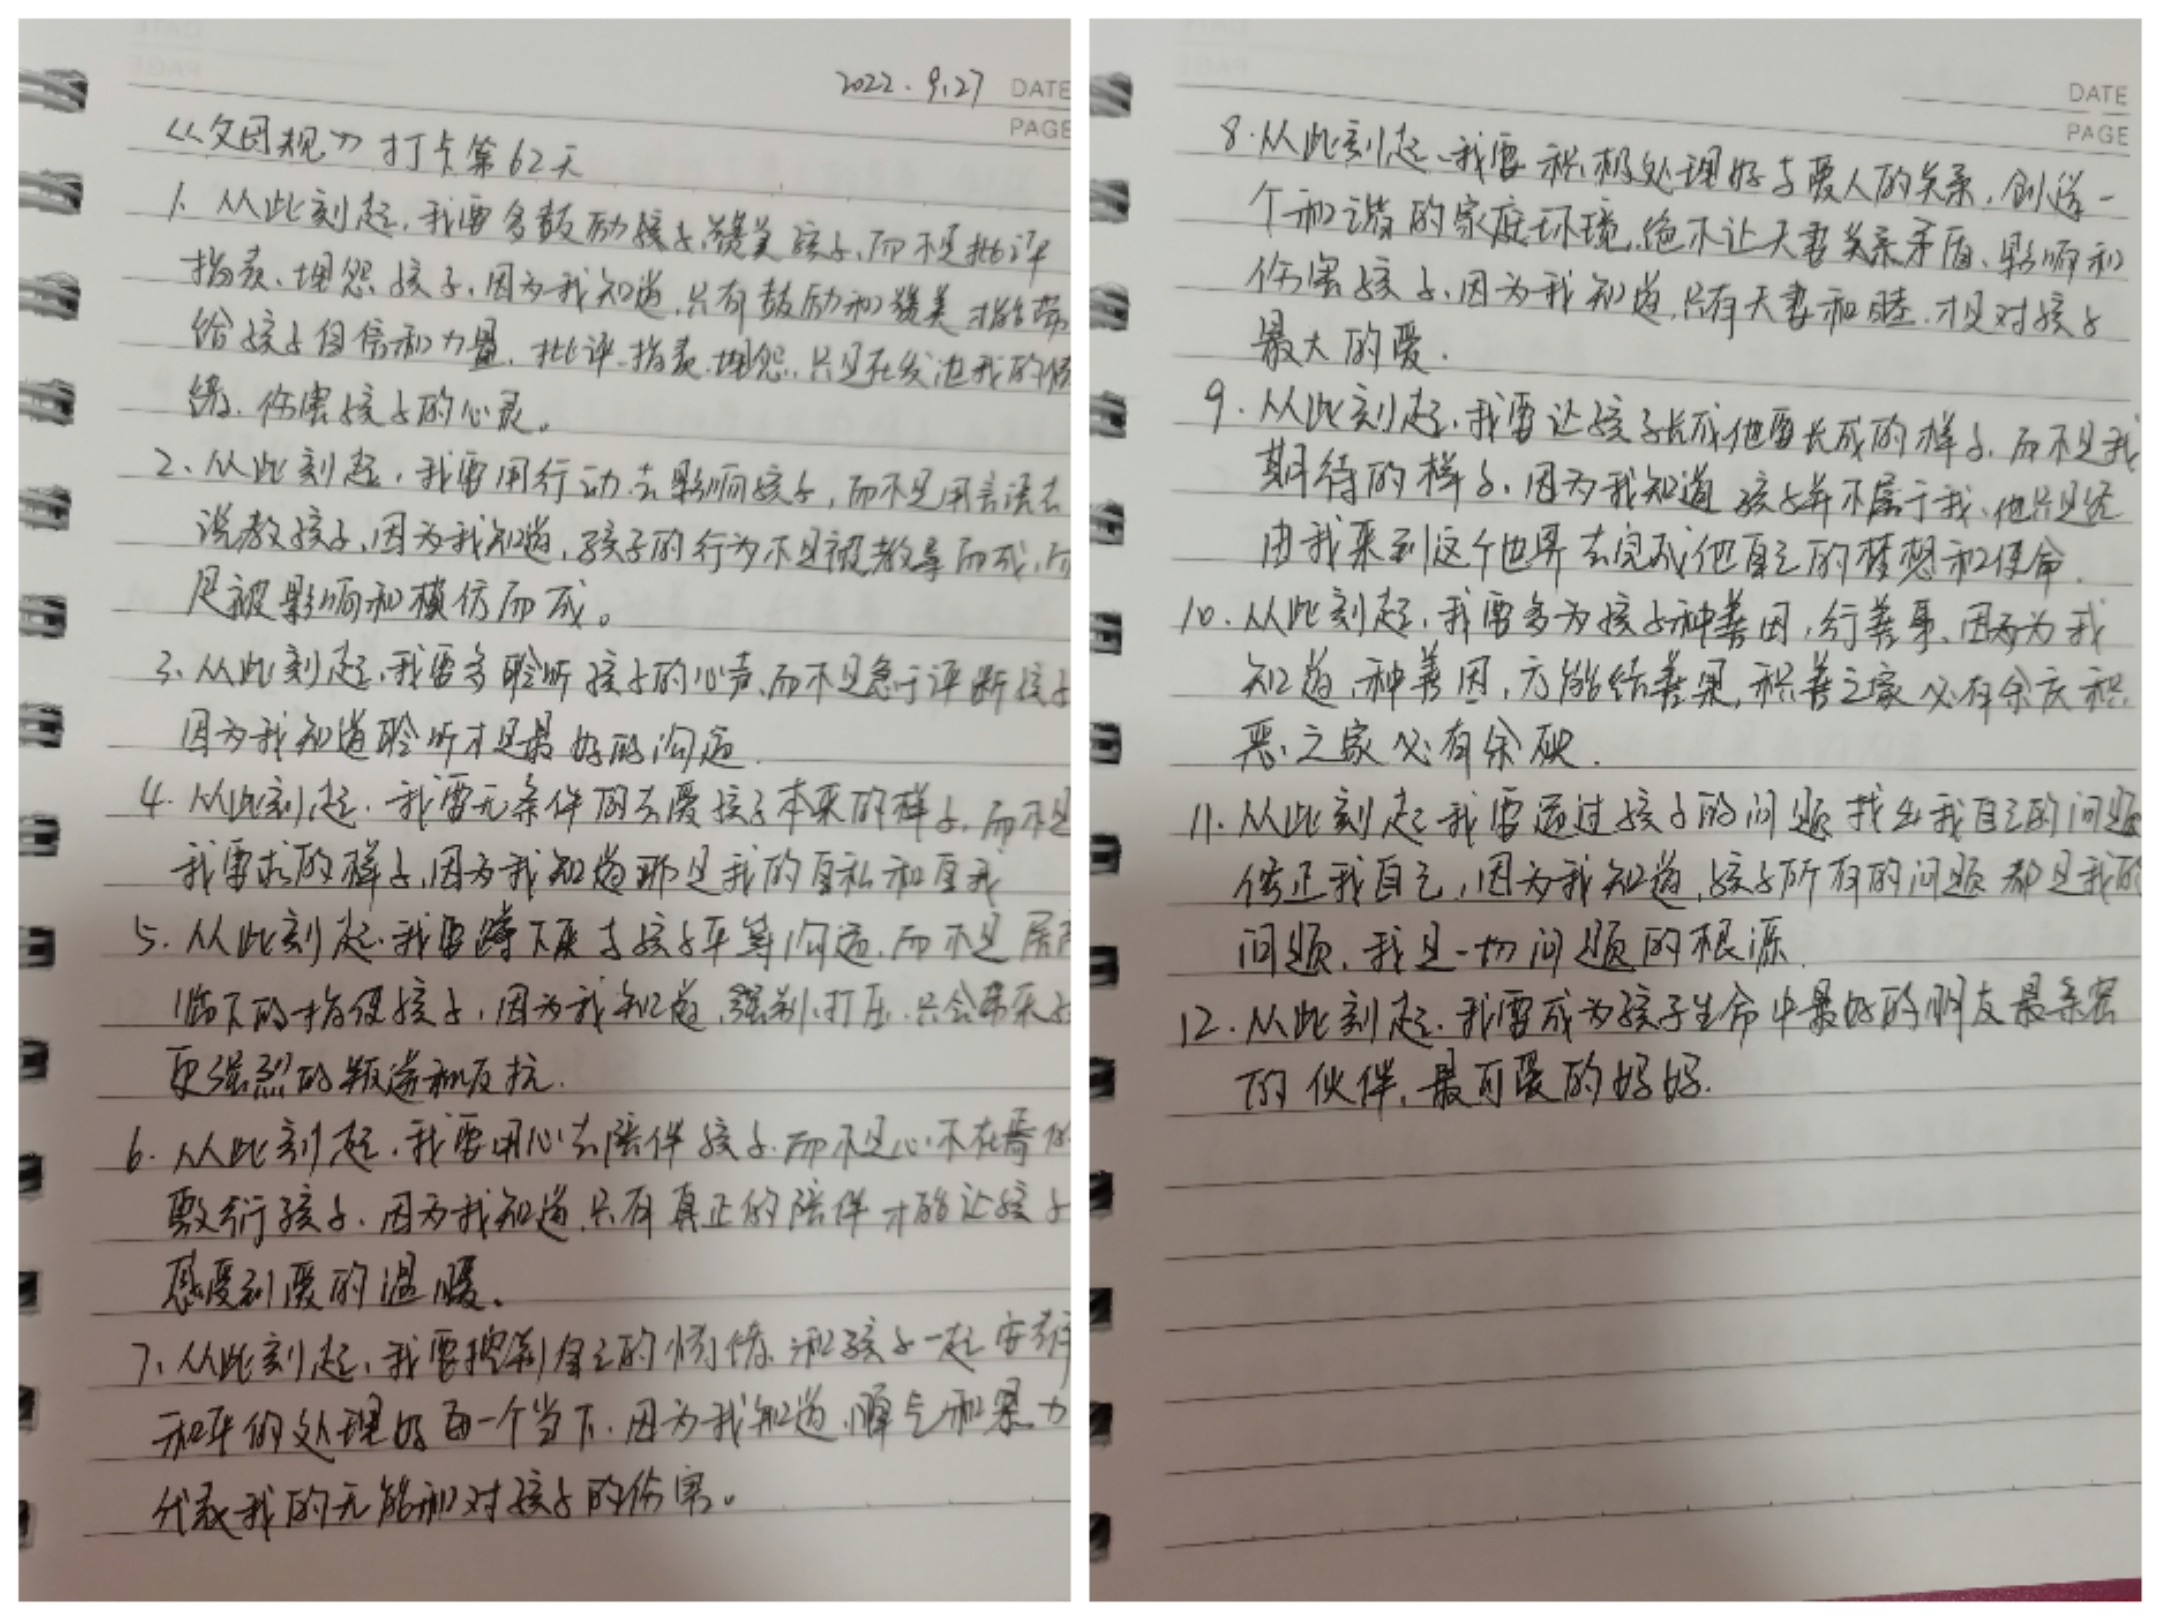 2022.9.27 DATE
PAGE
《父母规》打卡第62天
1. 从此刻起,我要多鼓励孩子,赞美孩子,而不是批评
指责、埋怨孩子,因为我知道,只有鼓励和赞美才能带
给孩子自信和力量,批评、指责、埋怨,只是在发泄我的情
绪、伤害孩子的心灵。
2、从此刻起,我要用行动去影响孩子,而不是用言语去
说教孩子,因为我知道,孩子的行为不是被教导而成,而
是被影响和模仿而成。
3、从此刻起,我要多聆听孩子的心声,而不是急于评断孩子
因为我知道聆听才是最好的沟通.
4. 从此刻起,我要无条件的去爱孩子本来的样子,而不是
我要求的样子,因为我知道那是我的自私和自我
5. 从此刻起,我要蹲下来与孩子平等沟通,而不是居高
临下的指使孩子,因为我知道,强制、打压,只会带来
更强烈的叛逆和反抗.
6. 从此刻起,我要用心去陪伴孩子,而不是心不在焉的
敷衍孩子,因为我知道,只有真正的陪伴才能让孩子
感受到爱的温暖。
7、从此刻起,我要控制自己的情绪,和孩子一起安静
和平的处理好每一个当下,因为我知道,脾气和暴力
代表我的无能和对孩子的伤害。
DATE
PAGE
8.从此刻起、我要积极处理好与爱人的关系,创造一
个和谐的家庭环境,绝不让夫妻关系矛盾、影响和
伤害孩子,因为我知道,只有夫妻和睦,才是对孩子
最大的爱.
9. 从此刻起,我要让孩子长成他要长成的样子,而不是我
期待的样子,因为我知道孩子并不属于我、他只是经
由我来到这个世界去完成他自己的梦想和使命.
10. 从此刻起,我要多为孩子种善因,行善事、因为我
知道,种善因,方能结善果,积善之家必有余庆积
恶之家必有余殃.
11. 从此刻起我要通过孩子的问题找出我自己的问题
修正我自己,因为我知道,孩子所有的问题都是我的
问题,我是一切问题的根源.
12. 从此刻起,我要成为孩子生命中最好的朋友最亲密
的伙伴,最可爱的妈妈.